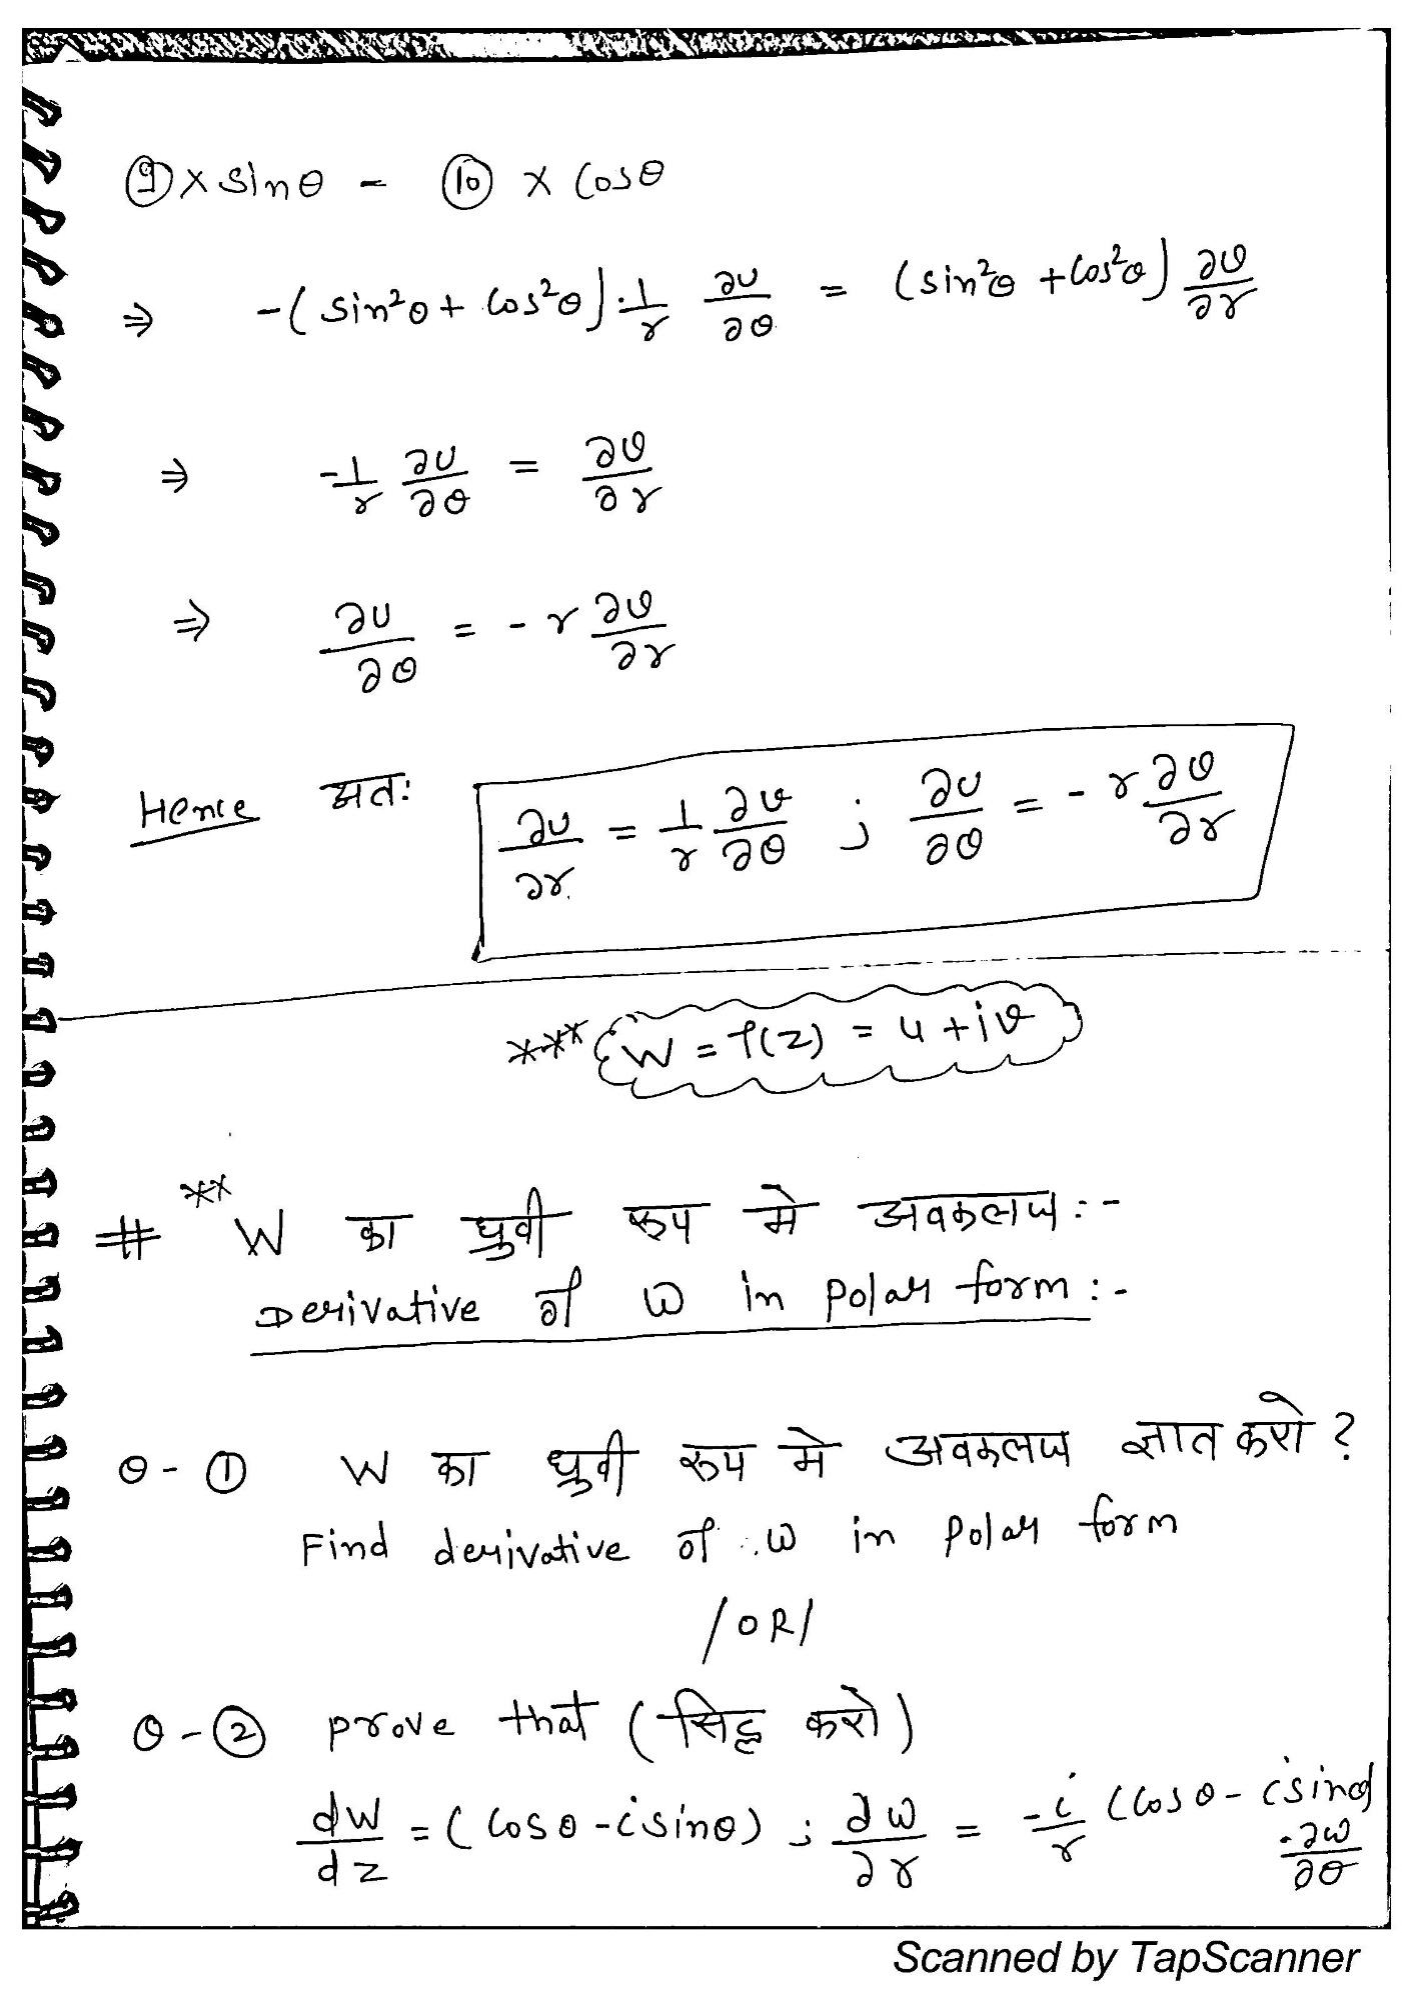 ⑨ × sinθ - ⑩ × cosθ
⇒ -(sin²θ + cos²θ).1/r ∂u/∂θ = (sin²θ + cos²θ) ∂v/∂r
⇒ -1/r ∂u/∂θ = ∂v/∂r
⇒ ∂u/∂θ = -r ∂v/∂r
Hence अतः ∂u/∂r = 1/r ∂v/∂θ ; ∂u/∂θ = -r ∂v/∂r
*** W = f(z) = u + iv
# ** W का ध्रुवी रूप मे अवकलज :-
Derivative of W in polar form :-
Q-① W का ध्रुवी रूप मे अवकलज ज्ञात करो ?
Find derivative of w in polar form
/OR/
Q-② prove that (सिद्ध करो)
dw/dz = (cosθ - isinθ) ; ∂w/∂r = -i/r (cosθ - isinθ) . ∂w/∂θ
Scanned by TapScanner